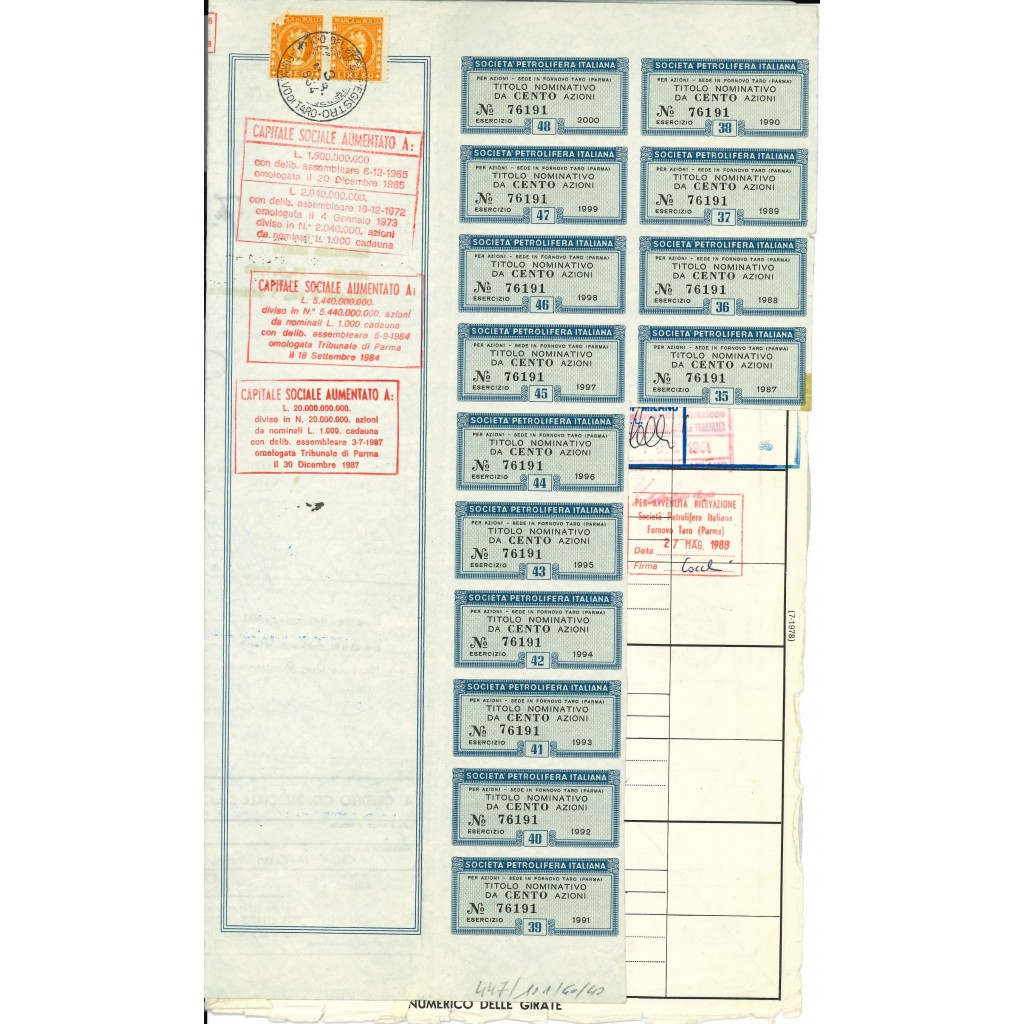 MARCA DA BOLLO
LIRE 60
CAPITALE SOCIALE AUMENTATO A:
L. 1.500.000.000
con delib. assembleare 6-12-1965
omologata il 20 Dicembre 1965
L. 2.040.000.000,
con delib. assembleare 18-12-1972
omologata il 4 Gennaio 1973
diviso in N.° 2.040.000. azioni
da nominali L. 1.000 cadauna
CAPITALE SOCIALE AUMENTATO A:
L. 5.440.000.000.
diviso in N.° 5.440.000.000. azioni
da nominali L. 1.000 cadauna
con delib. assembleare 5-9-1984
omologata Tribunale di Parma
il 18 Settembre 1984
CAPITALE SOCIALE AUMENTATO A:
L. 20.000.000.000.
diviso in N. 20.000.000. azioni
da nominali L. 1.000. cadauna
con delib. essembleare 3-7-1987
omologata Tribunale di Parma
il 30 Dicembre 1987
SOCIETÀ PETROLIFERA ITALIANA
PER AZIONI - SEDE IN FORNOVO TARO (PARMA)
TITOLO NOMINATIVO
DA CENTO AZIONI
№ 76191
ESERCIZIO 48 2000
SOCIETÀ PETROLIFERA ITALIANA
PER AZIONI - SEDE IN FORNOVO TARO (PARMA)
TITOLO NOMINATIVO
DA CENTO AZIONI
№ 76191
ESERCIZIO 47 1999
SOCIETÀ PETROLIFERA ITALIANA
PER AZIONI - SEDE IN FORNOVO TARO (PARMA)
TITOLO NOMINATIVO
DA CENTO AZIONI
№ 76191
ESERCIZIO 46 1998
SOCIETÀ PETROLIFERA ITALIANA
PER AZIONI - SEDE IN FORNOVO TARO (PARMA)
TITOLO NOMINATIVO
DA CENTO AZIONI
№ 76191
ESERCIZIO 45 1997
SOCIETÀ PETROLIFERA ITALIANA
PER AZIONI - SEDE IN FORNOVO TARO (PARMA)
TITOLO NOMINATIVO
DA CENTO AZIONI
№ 76191
ESERCIZIO 44 1996
SOCIETÀ PETROLIFERA ITALIANA
PER AZIONI - SEDE IN FORNOVO TARO (PARMA)
TITOLO NOMINATIVO
DA CENTO AZIONI
№ 76191
ESERCIZIO 43 1995
SOCIETÀ PETROLIFERA ITALIANA
PER AZIONI - SEDE IN FORNOVO TARO (PARMA)
TITOLO NOMINATIVO
DA CENTO AZIONI
№ 76191
ESERCIZIO 42 1994
SOCIETÀ PETROLIFERA ITALIANA
PER AZIONI - SEDE IN FORNOVO TARO (PARMA)
TITOLO NOMINATIVO
DA CENTO AZIONI
№ 76191
ESERCIZIO 41 1993
SOCIETÀ PETROLIFERA ITALIANA
PER AZIONI - SEDE IN FORNOVO TARO (PARMA)
TITOLO NOMINATIVO
DA CENTO AZIONI
№ 76191
ESERCIZIO 40 1992
SOCIETÀ PETROLIFERA ITALIANA
PER AZIONI - SEDE IN FORNOVO TARO (PARMA)
TITOLO NOMINATIVO
DA CENTO AZIONI
№ 76191
ESERCIZIO 39 1991
SOCIETÀ PETROLIFERA ITALIANA
PER AZIONI - SEDE IN FORNOVO TARO (PARMA)
TITOLO NOMINATIVO
DA CENTO AZIONI
№ 76191
ESERCIZIO 38 1990
SOCIETÀ PETROLIFERA ITALIANA
PER AZIONI - SEDE IN FORNOVO TARO (PARMA)
TITOLO NOMINATIVO
DA CENTO AZIONI
№ 76191
ESERCIZIO 37 1989
SOCIETÀ PETROLIFERA ITALIANA
PER AZIONI - SEDE IN FORNOVO TARO (PARMA)
TITOLO NOMINATIVO
DA CENTO AZIONI
№ 76191
ESERCIZIO 36 1988
SOCIETÀ PETROLIFERA ITALIANA
PER AZIONI - SEDE IN FORNOVO TARO (PARMA)
TITOLO NOMINATIVO
DA CENTO AZIONI
№ 76191
ESERCIZIO 35 1987
MILANO
PER AVVENUTA RICEVAZIONE
Società Petrolifera Italiana
Fornovo Taro (Parma)
Data 27 MAG. 1988
Firma
(7-1978)
447/101/60/40
NUMERICO DELLE GIRATE